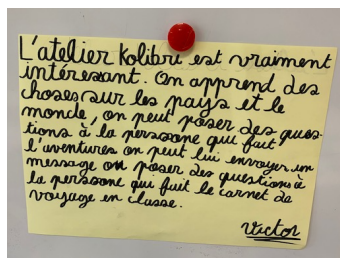 L'atelier Kolibri est vraiment
intéressant. On apprend des
choses sur les pays et le
monde, on peut poser des ques-
tions à la perssone qui fait
l'aventures on peut lui envoyer un
message ou poser des questions à
la perssone qui fait le carnet de
voyage en classe.
Victor